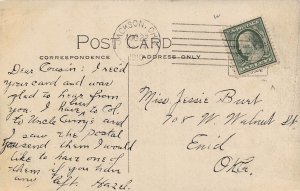 JACKSON,
POST CARD
CORRESPONDENCE
ADDRESS ONLY
Dear Cousin: I rec'd
your card and was
glad to hear from
you. I have to Col.
to Uncle
I saw the postal
you send them I would
like to have one of
them if you have
any left. Hazel.
Miss Jessie Burt
708 W. Walnut St
Enid
Okla.